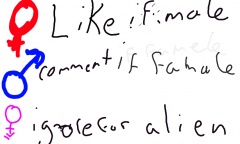 Like if male
comment if famale
ignore for alien